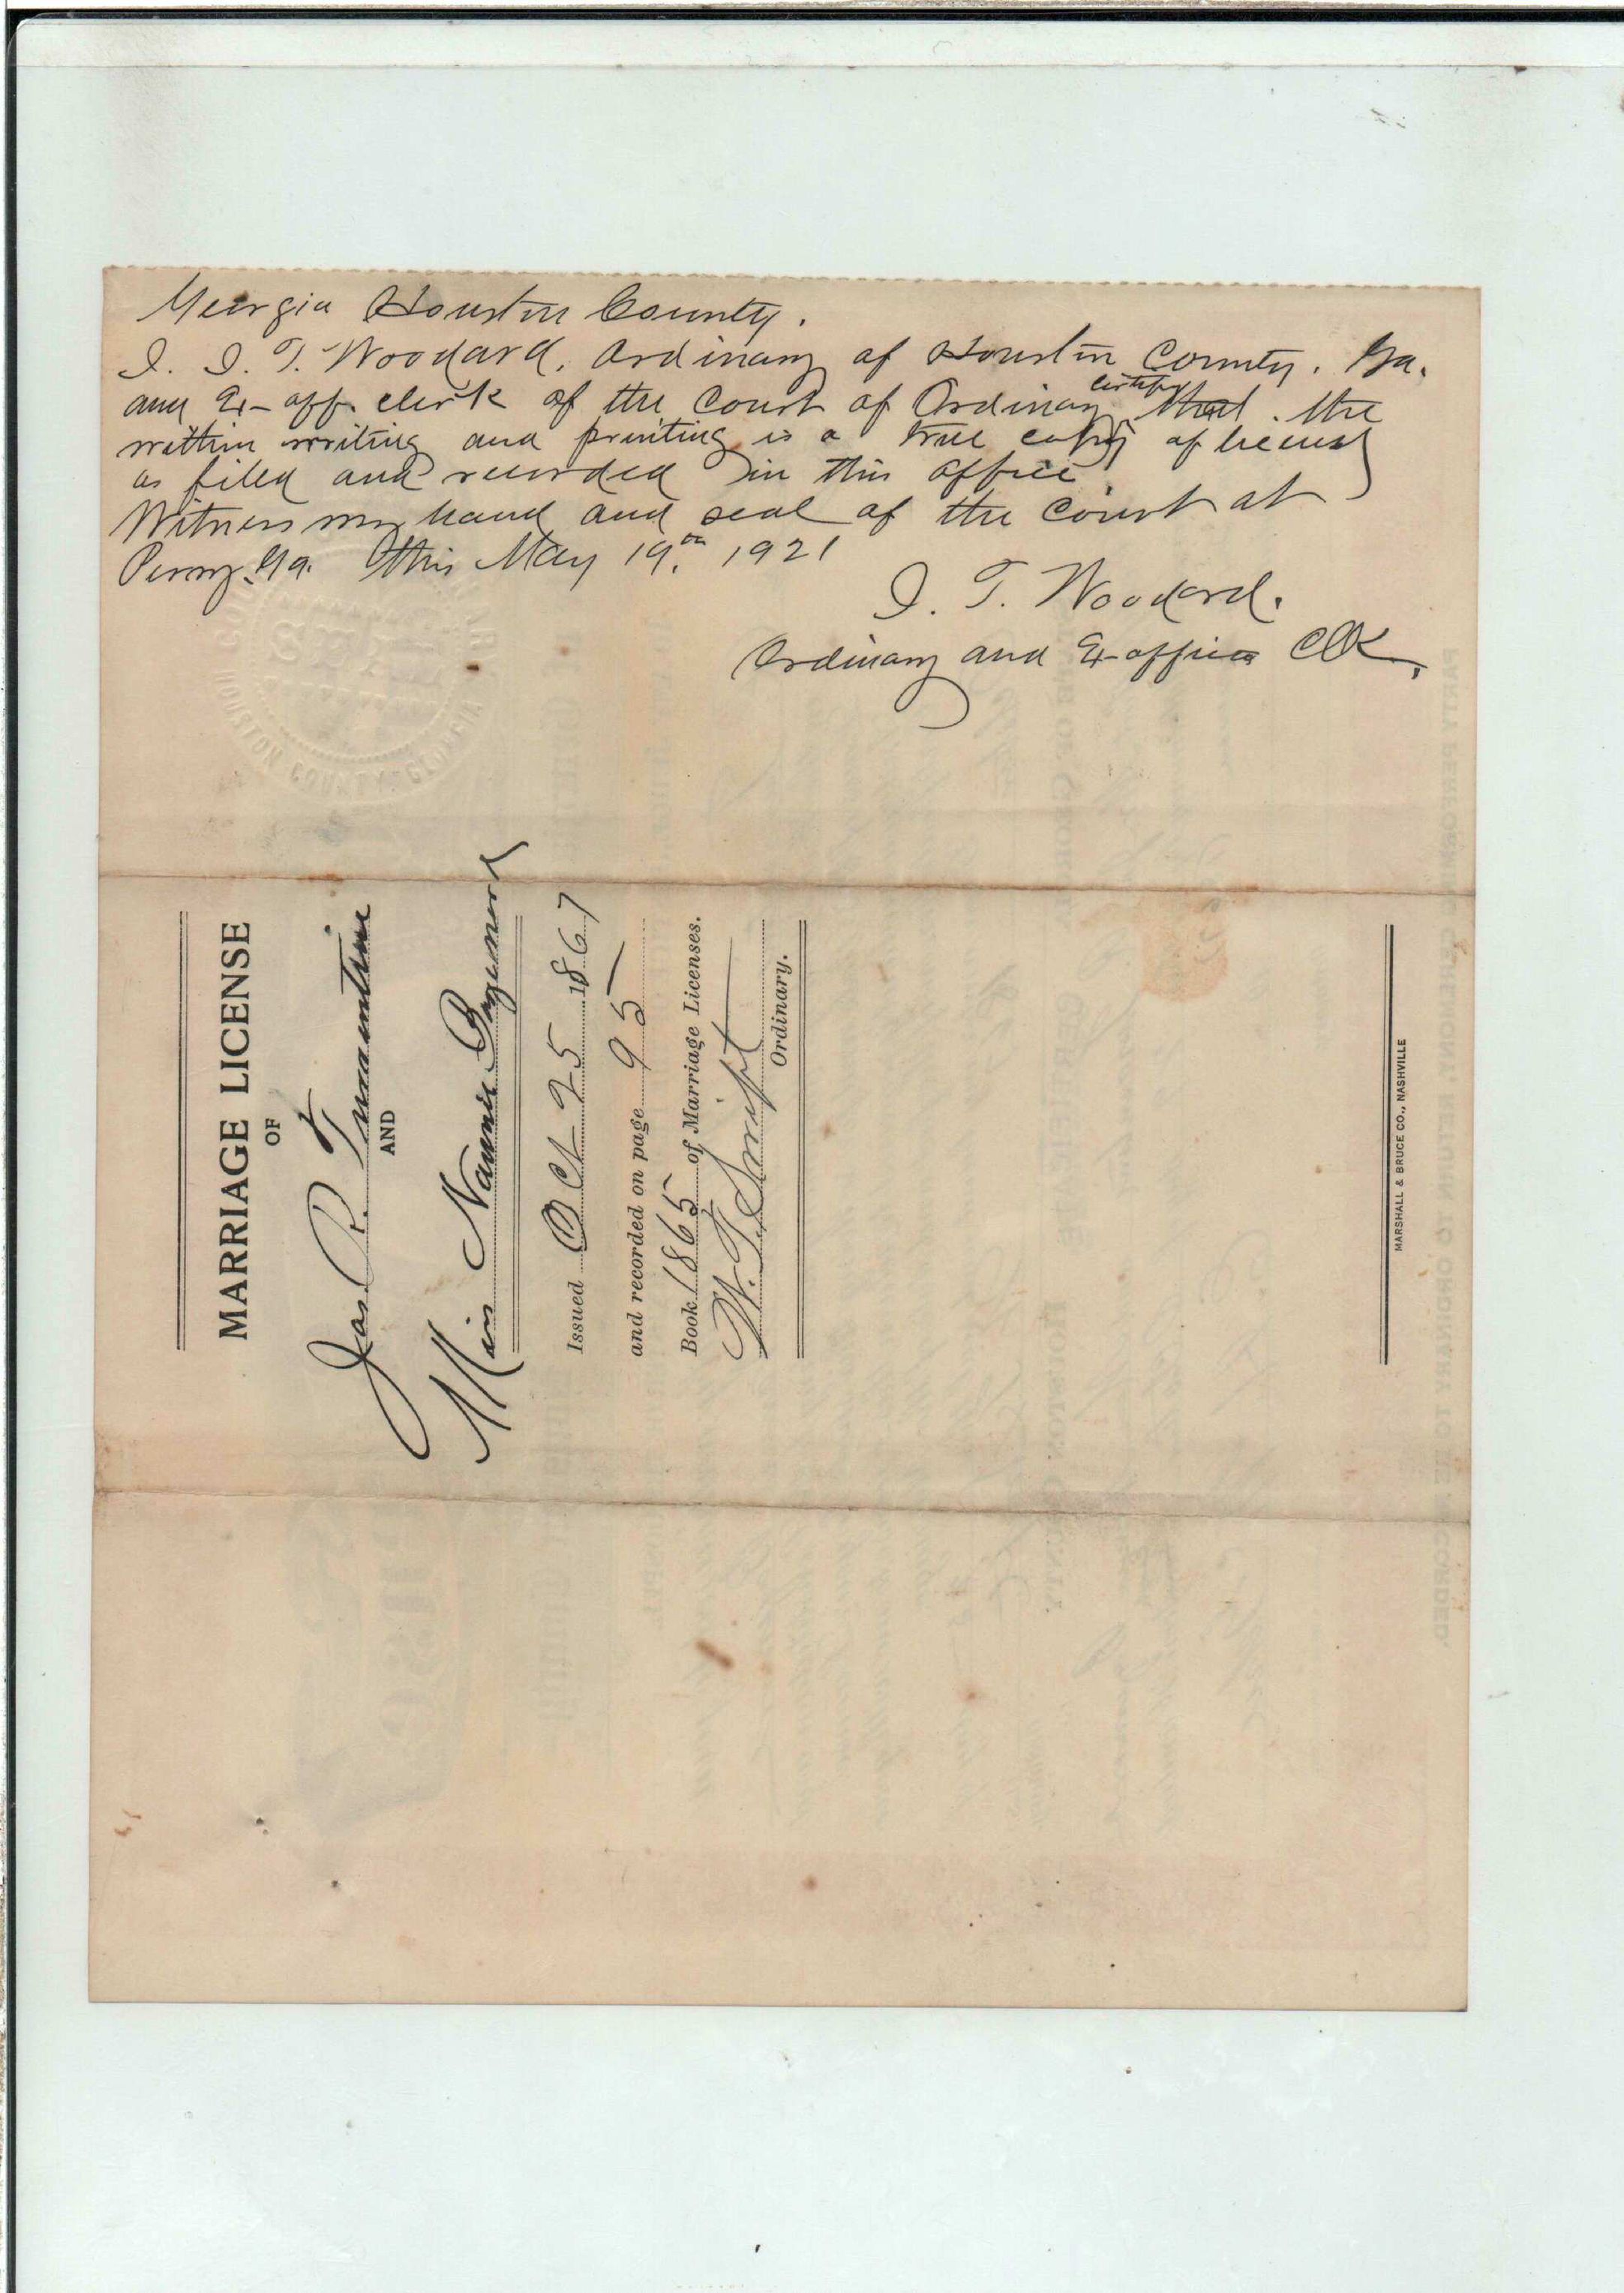 Georgia Houston County.
I. I. T. Woodard, Ordinary of Houston County, Ga.
and Ex-off. clerk of the Court of Ordinary certify that the
within writing and printing is a true copy of license
as filed and recorded in this office
Witness my hand and seal of the Court at
Perry, Ga. this May 19th 1921
I. T. Woodard.
Ordinary and Ex-officio Clk.
HOUSTON COUNTY GEORGIA
MARRIAGE LICENSE
OF
Jas. R.
AND
Miss Nannie
Issued Oct 25 1867
and recorded on page 95
Book 1865 of Marriage Licenses.
W. T. Swift
Ordinary.
MARSHALL & BRUCE CO., NASHVILLE